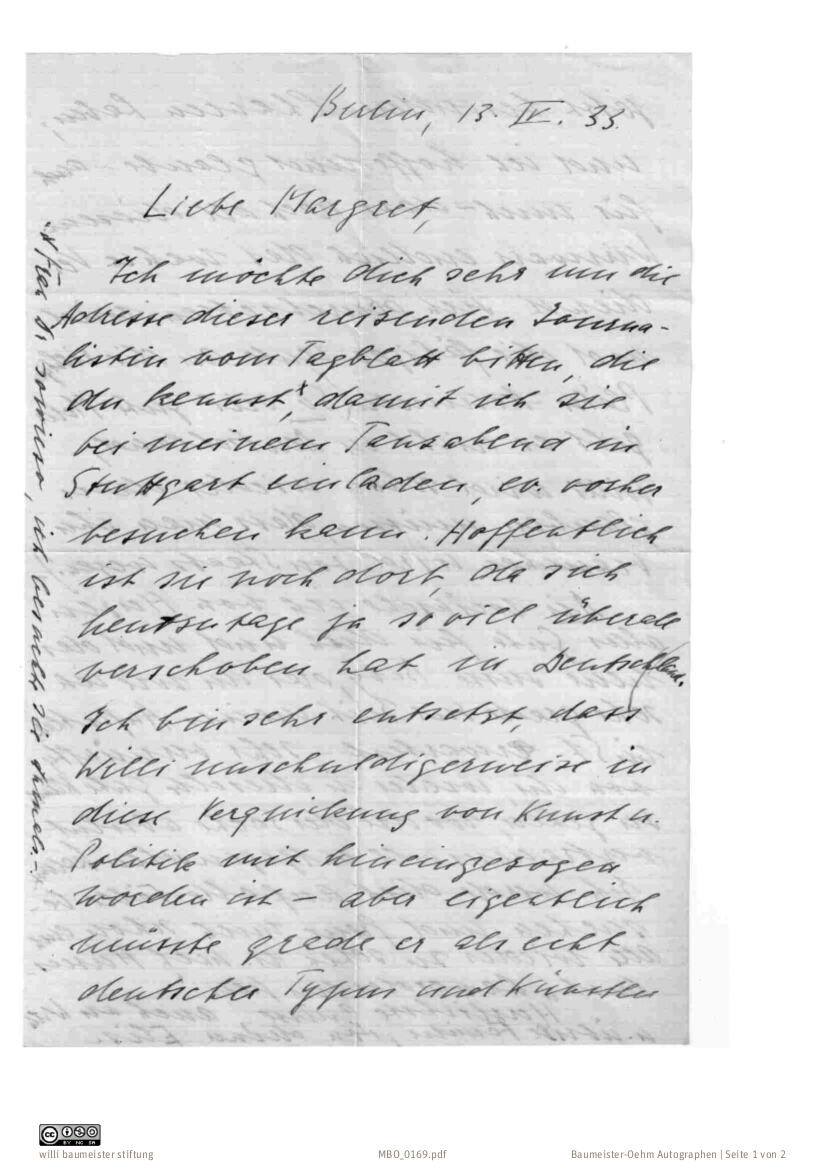 Berlin, 13. IV. 33.
Liebe Margret,
Ich möchte dich sehr um die
Adresse dieser reisenden Journa-
listin vom Tagblatt bitten, die
du kennst,x damit ich sie
bei meinem Tanzabend in
Stuttgart einladen, ev. vorher
besuchen kann. Hoffentlich
ist sie noch dort, da sich
heutzutage ja soviel überall
verschoben hat in Deutschland.
Ich bin sehr entsetzt, dass
Willi unschuldigerweise in
diese Verquickung von Kunst u.
Politik mit hineingezogen
worden ist – aber eigentlich
müsste grade er als echt
deutscher Typus und Künstler
ich besuchte sie
willi baumeister stiftung
MBO_0169.pdf
Baumeister-Oehm Autographen | Seite 1 von 2
cc BY NC SA